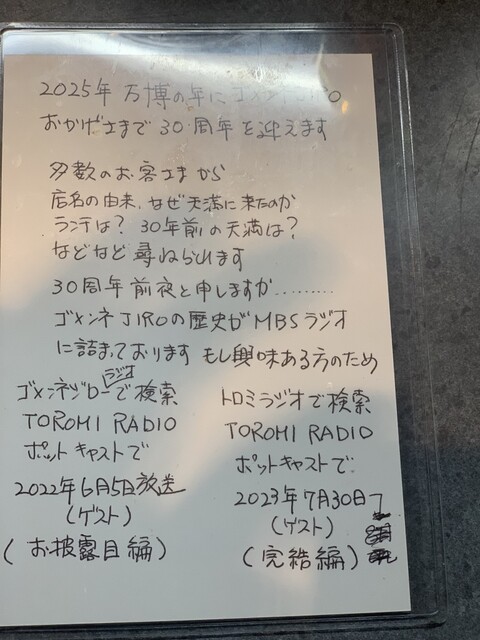 2025年 万博の年にゴメンネJIRO
おかげさまで 30周年を迎えます
多数のお客さまから
店名の由来、なぜ天満に来たのか
ランチは？ 30年前の天満は？
などなど 尋ねられます
30周年前夜と申しますか………
ゴメンネJIROの歴史がMBSラジオ
に詰まっております もし興味ある方のため
ゴメンネジローラジオで検索
TOROMI RADIO
ポットキャストで
2022年6月5日放送
(ゲスト)
(お披露目編)
トロミラジオで検索
TOROMI RADIO
ポットキャストで
2023年7月30日
(ゲスト)
(完結編)